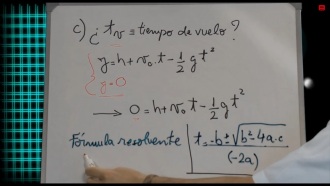 c) ¿ tv = tiempo de vuelo ?
y = h + v₀ . t - 1/2 g t²
y = 0
→ 0 = h + v₀ . t - 1/2 g t²
Fórmula resolvente | t = -b ± √b² ± 4a·c / (-2a)